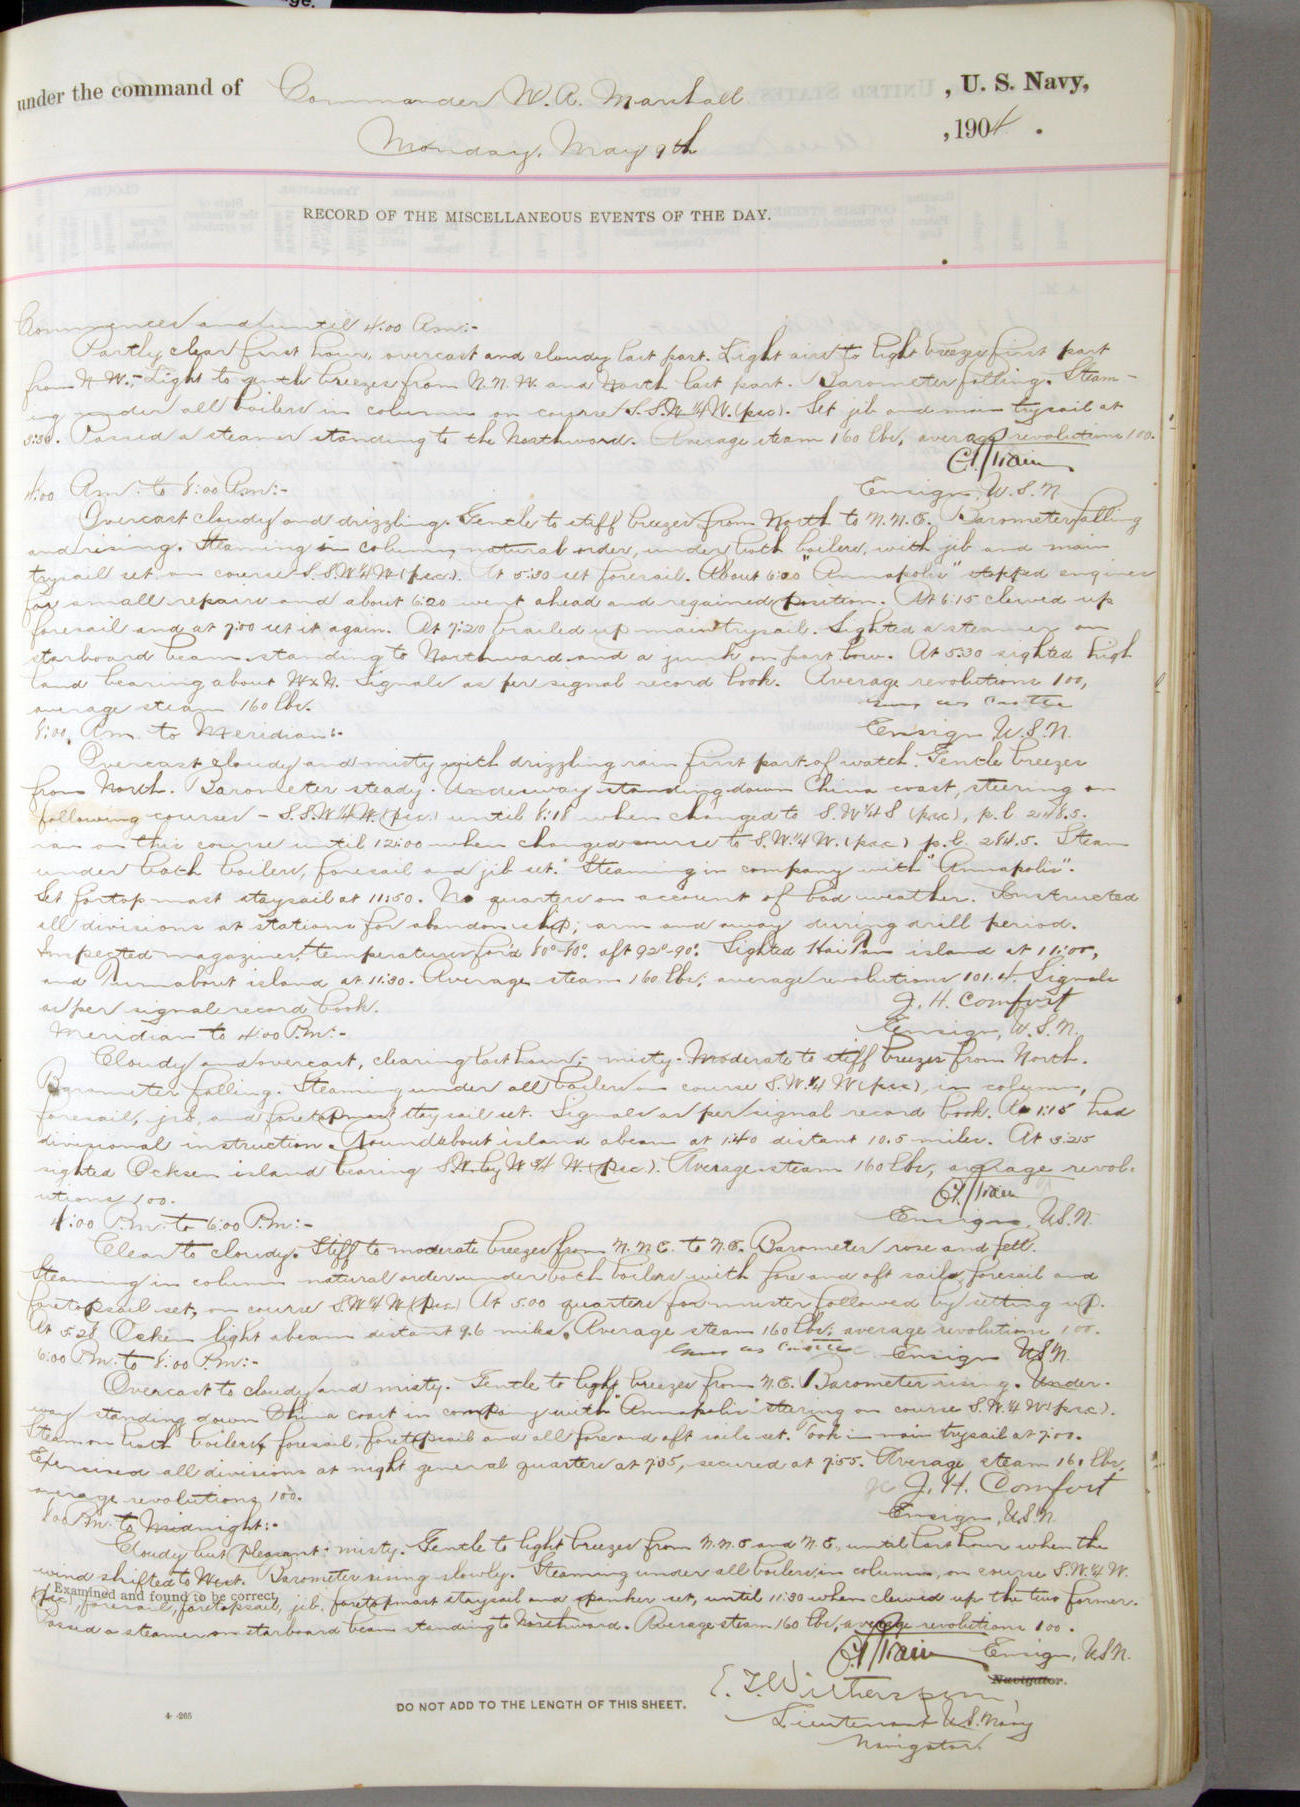 ge.
under the command of Commander W. A. Marshall, U. S. Navy,
Monday, May 9th, 1904.
RECORD OF THE MISCELLANEOUS EVENTS OF THE DAY.
Commences and until 4:00 Am:-
Partly clear first hour, overcast and cloudy last part. Light airs to light breezes first part
from N.W.;- Light to gentle breezes from N.N.W. and North last part. Barometer falling. Steam-
ing under all boilers in column on course S.S.W.¼W. (psc). Set jib and main trysail at
3:30. Passed a steamer standing to the Northward. Average steam 160 lbs, average revolutions 100.
Ensign, U.S.N.
4:00 Am. to 8:00 Am:-
Overcast cloudy and drizzling. Gentle to stiff breezes from North to N.N.E. Barometer falling
and rising. Steaming in column, natural order, under both boilers, with jib and main
trysail set on course S.S.W.¼W (psc). At 5:30 set foresail. About 6:00 "Annapolis" stopped engines
for small repairs and about 6:20 went ahead and regained position. At 6:15 clewed up
foresail and at 7:00 set it again. At 7:20 brailed up main trysail. Sighted a steamer on
starboard beam standing to Northward and a junk on port bow. At 5:30 sighted high
land bearing about WxN. Signals as per signal record book. Average revolutions 100,
average steam 160 lbs.
Ensign U.S.N.
8:00 Am. to Meridian:-
Overcast cloudy and misty with drizzling rain first part of watch. Gentle breezes
from North. Barometer steady. Underway standing down China coast, steering on
following courses - S.S.W.¼W. (psc) until 8:18 when changed to S.W.¼S (psc), p.l. 248.5.
ran on this course until 12:00 when changed course to S.W.¼W. (psc) p.l. 284.5. Steam
under both boilers, foresail and jib set. Steaming in company with "Annapolis".
Set foretopmast staysail at 11:50. No quarters on account of bad weather. Instructed
all divisions at stations for abandon ship; arm and away during drill period.
Inspected magazines, temperatures for'd 80°-80°. aft 92°-90°. Sighted Hai Tan island at 11:00,
and Turnabout island at 11:30. Average steam 160 lbs; average revolutions 101.4. Signals
as per signal record book.
J. H. Comfort
Ensign, U.S.N.
Meridian to 4:00 P.m:-
Cloudy and overcast, clearing last hour;- misty. Moderate to stiff breezes from North.
Barometer falling. Steaming under all boilers on course S.W.¼W (psc), in column,
foresail, jib, and foretopmast staysail set. Signals as per signal record book. At 1:15 had
divisional instruction. Turnabout island abeam at 1:40 distant 10.5 miles. At 3:25
sighted Ocksen island bearing S.W. by W ¾ W. (psc). Average steam 160 lbs, average revol-
utions 100.
Ensign, U.S.N.
4:00 P.m. to 6:00 P.m:-
Clear to cloudy. Stiff to moderate breezes from N.N.E. to N.E. Barometer rose and fell.
Steaming in column natural order under both boilers with fore and aft sails, foresail and
foretopsail set, on course S.W.¼W (psc) At 5.00 quarters for muster followed by setting up.
At 5.28 Ocksen light abeam distant 9.6 miles. Average steam 160 lbs; average revolutions 100.
Ensign U.S.N.
6:00 P.m. to 8:00 P.m:-
Overcast to cloudy and misty. Gentle to light breezes from N.E. Barometer rising. Under-
way standing down China coast in company with "Annapolis" steering on course S.W.¼W (psc).
Steam on both boilers, foresail, foretopsail and all fore and aft sails set. Took in main trysail at 7:00.
Exercised all divisions at night general quarters at 7:05, secured at 7:55. Average steam 161 lbs,
average revolutions 100.
J. H. Comfort
Ensign, U.S.N.
8:00 P.m. to Midnight:-
Cloudy but pleasant: misty. Gentle to light breezes from N.N.E and N.E. until last hour when the
wind shifted to West. Barometer rising slowly. Steaming under all boilers in column, on course S.W.¼W.
(psc), foresail, foretopsail, jib, foretopmast staysail and spanker set, until 11:30 when clewed up the two former.
Examined and found to be correct,
Passed a steamer on starboard beam standing to Northward. Average steam 160 lbs, average revolutions 100.
Ensign, U.S.N.
Navigator.
E. T. Witherspoon,
Lieutenant U.S. Navy
Navigator.
DO NOT ADD TO THE LENGTH OF THIS SHEET.
4-265